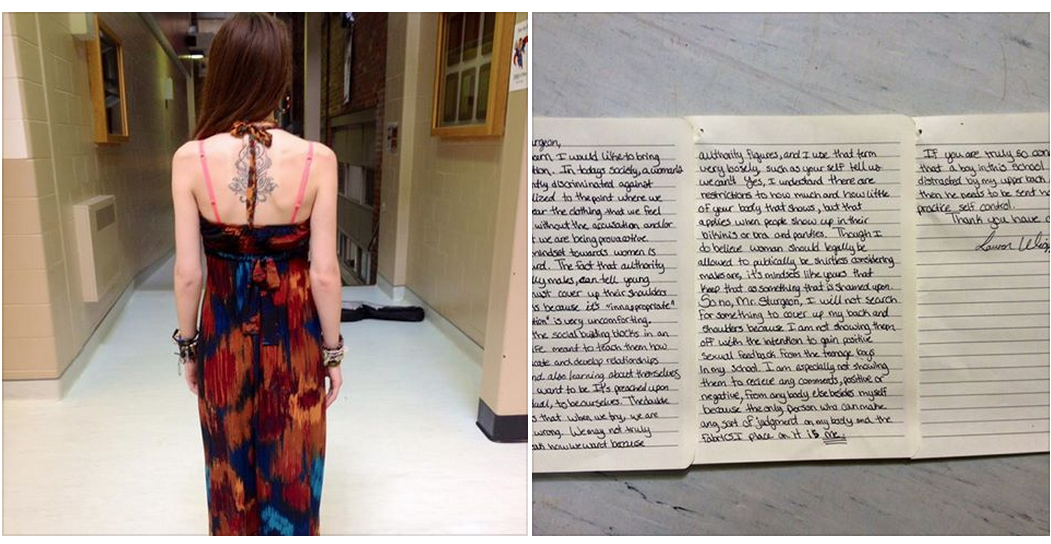 urgeon,
orn, I would like to bring
tion. In todays society, a woman is
ntly discriminated against
lized to the point where we
ear the clothing that we feel
without the accusation and/or
t we are being provacative
mindset towards women is
urd. The fact that authority
lly males, can tell young
must cover up their shoulders
is because it's "innappropriate"
tion" is very uncomforting.
the social building blocks in an
ife meant to teach them how
cate and develop relationships
nd also learning about themselves
want to be. It's preached upon
ual, to be ourselves. The double
s that when we try, we are
wrong. We may not truly
ess how we want because
authority figures, and I use that term
very loosely, such as your self tell us
we can't. Yes, I understand there are
restrictions to how much and how little
of your body that shows, but that
applies when people show up in their
bikinis or bra and panties. Though I
do believe woman should legally be
allowed to publically be shirtless considering
males are, it's mindsets like yours that
keep that as something that is shamed upon.
So no, Mr. Sturgeon, I will not search
for something to cover up my back and
shoulders because I am not showing them
off with the intention to gain positive
sexual feedback from the teenage boys
in my school. I am especially not showing
them to recieve any comments, positive or
negative, from anybody else besides myself
because the only person who can make
any sort of judgment on my body and the
fabrics I place on it is me.
If you are truly so con
that a boy in this school
distracted by my upper back
then he needs to be sent h
practice self control.
Thank you have a
Lauren Wigg